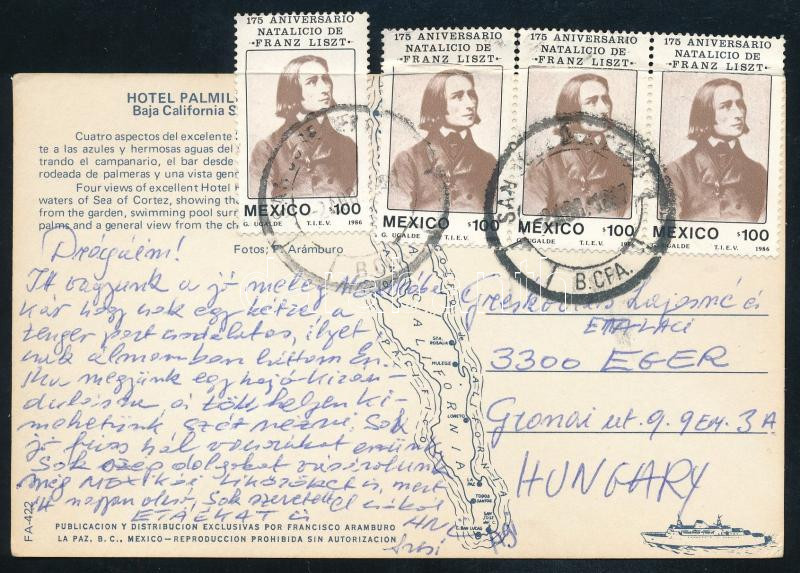 175 ANIVERSARIO
NATALICIO DE
FRANZ LISZT
MEXICO $100
G. UGALDE T.I.E.V. 1986
175 ANIVERSARIO
NATALICIO DE
FRANZ LISZT
MEXICO $100
G. UGALDE T.I.E.V.
175 ANIVERSARIO
NATALICIO DE
FRANZ LISZT
MEXICO $100
G. UGALDE T.I.E.V.
175 ANIVERSARIO
NATALICIO DE
FRANZ LISZT
MEXICO $100
G. UGALDE T.I.E.V. 1986
SAN
B.CFA.
HOTEL PALMIL
Baja California S
Cuatro aspectos del excelente
te a las azules y hermosas aguas del
trando el campanario, el bar desde
rodeada de palmeras y una vista gene
Four views of excellent Hotel
waters of Sea of Cortez, showing the
from the garden, swimming pool surr
palms and a general view from the ch
Fotos: F. Arámburo
Drágáim!
Itt vagyunk a jó meleg
kár hogy csak egy hétre, a
tenger part csodálatos, ilyet
csak álmomban láttam
megyünk egy hajó kirán-
dulásra, a több helyen ki-
mehetünk szét nézni. Sok
jó friss hal vacsorákat
Sok szép dolgokat vásárolunk
még MEXIKÓI
itt nagyon olcsó, Sok szeretettel csókol
CALIFORNIA
PACIFICO
STA. ROSALIA
MULEGE
LORETO
LA PAZ
TODOS SANTOS
SAN JOSE
C. SAN LUCAS
Lajosné és
3300 EGER
Gronai ut. 9. 9 Em. 3 A
HUNGARY
FA-422
PUBLICACION Y DISTRIBUCION EXCLUSIVAS POR FRANCISCO ARAMBURO
LA PAZ, B. C., MEXICO - REPRODUCCION PROHIBIDA SIN AUTORIZACION